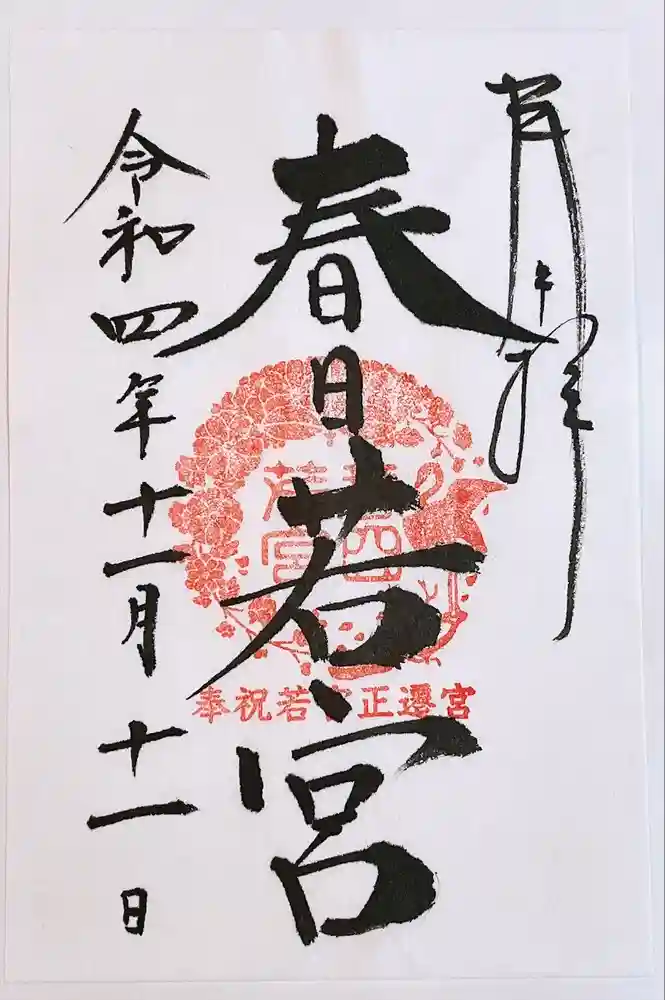 奉拝
春日若宮
春日
若宮
奉祝若宮正遷宮
令和四年十一月十一日